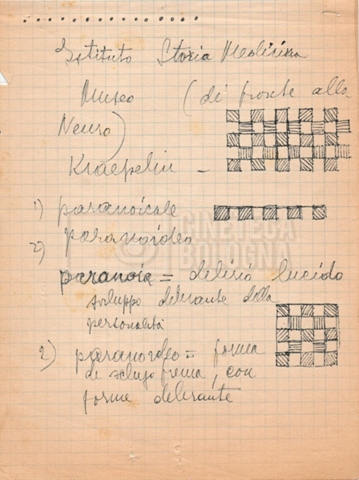 Istituto Storia Medicina
Museo (di fronte alla
Neuro)
Kraepelin -
1) paranoicale
2) paranoideo
paranoia = delirio lucido
sviluppo delirante della
personalità
2) paranoideo = forma
di schizofrenia, con
forme delirante
CINETECA
BOLOGNA